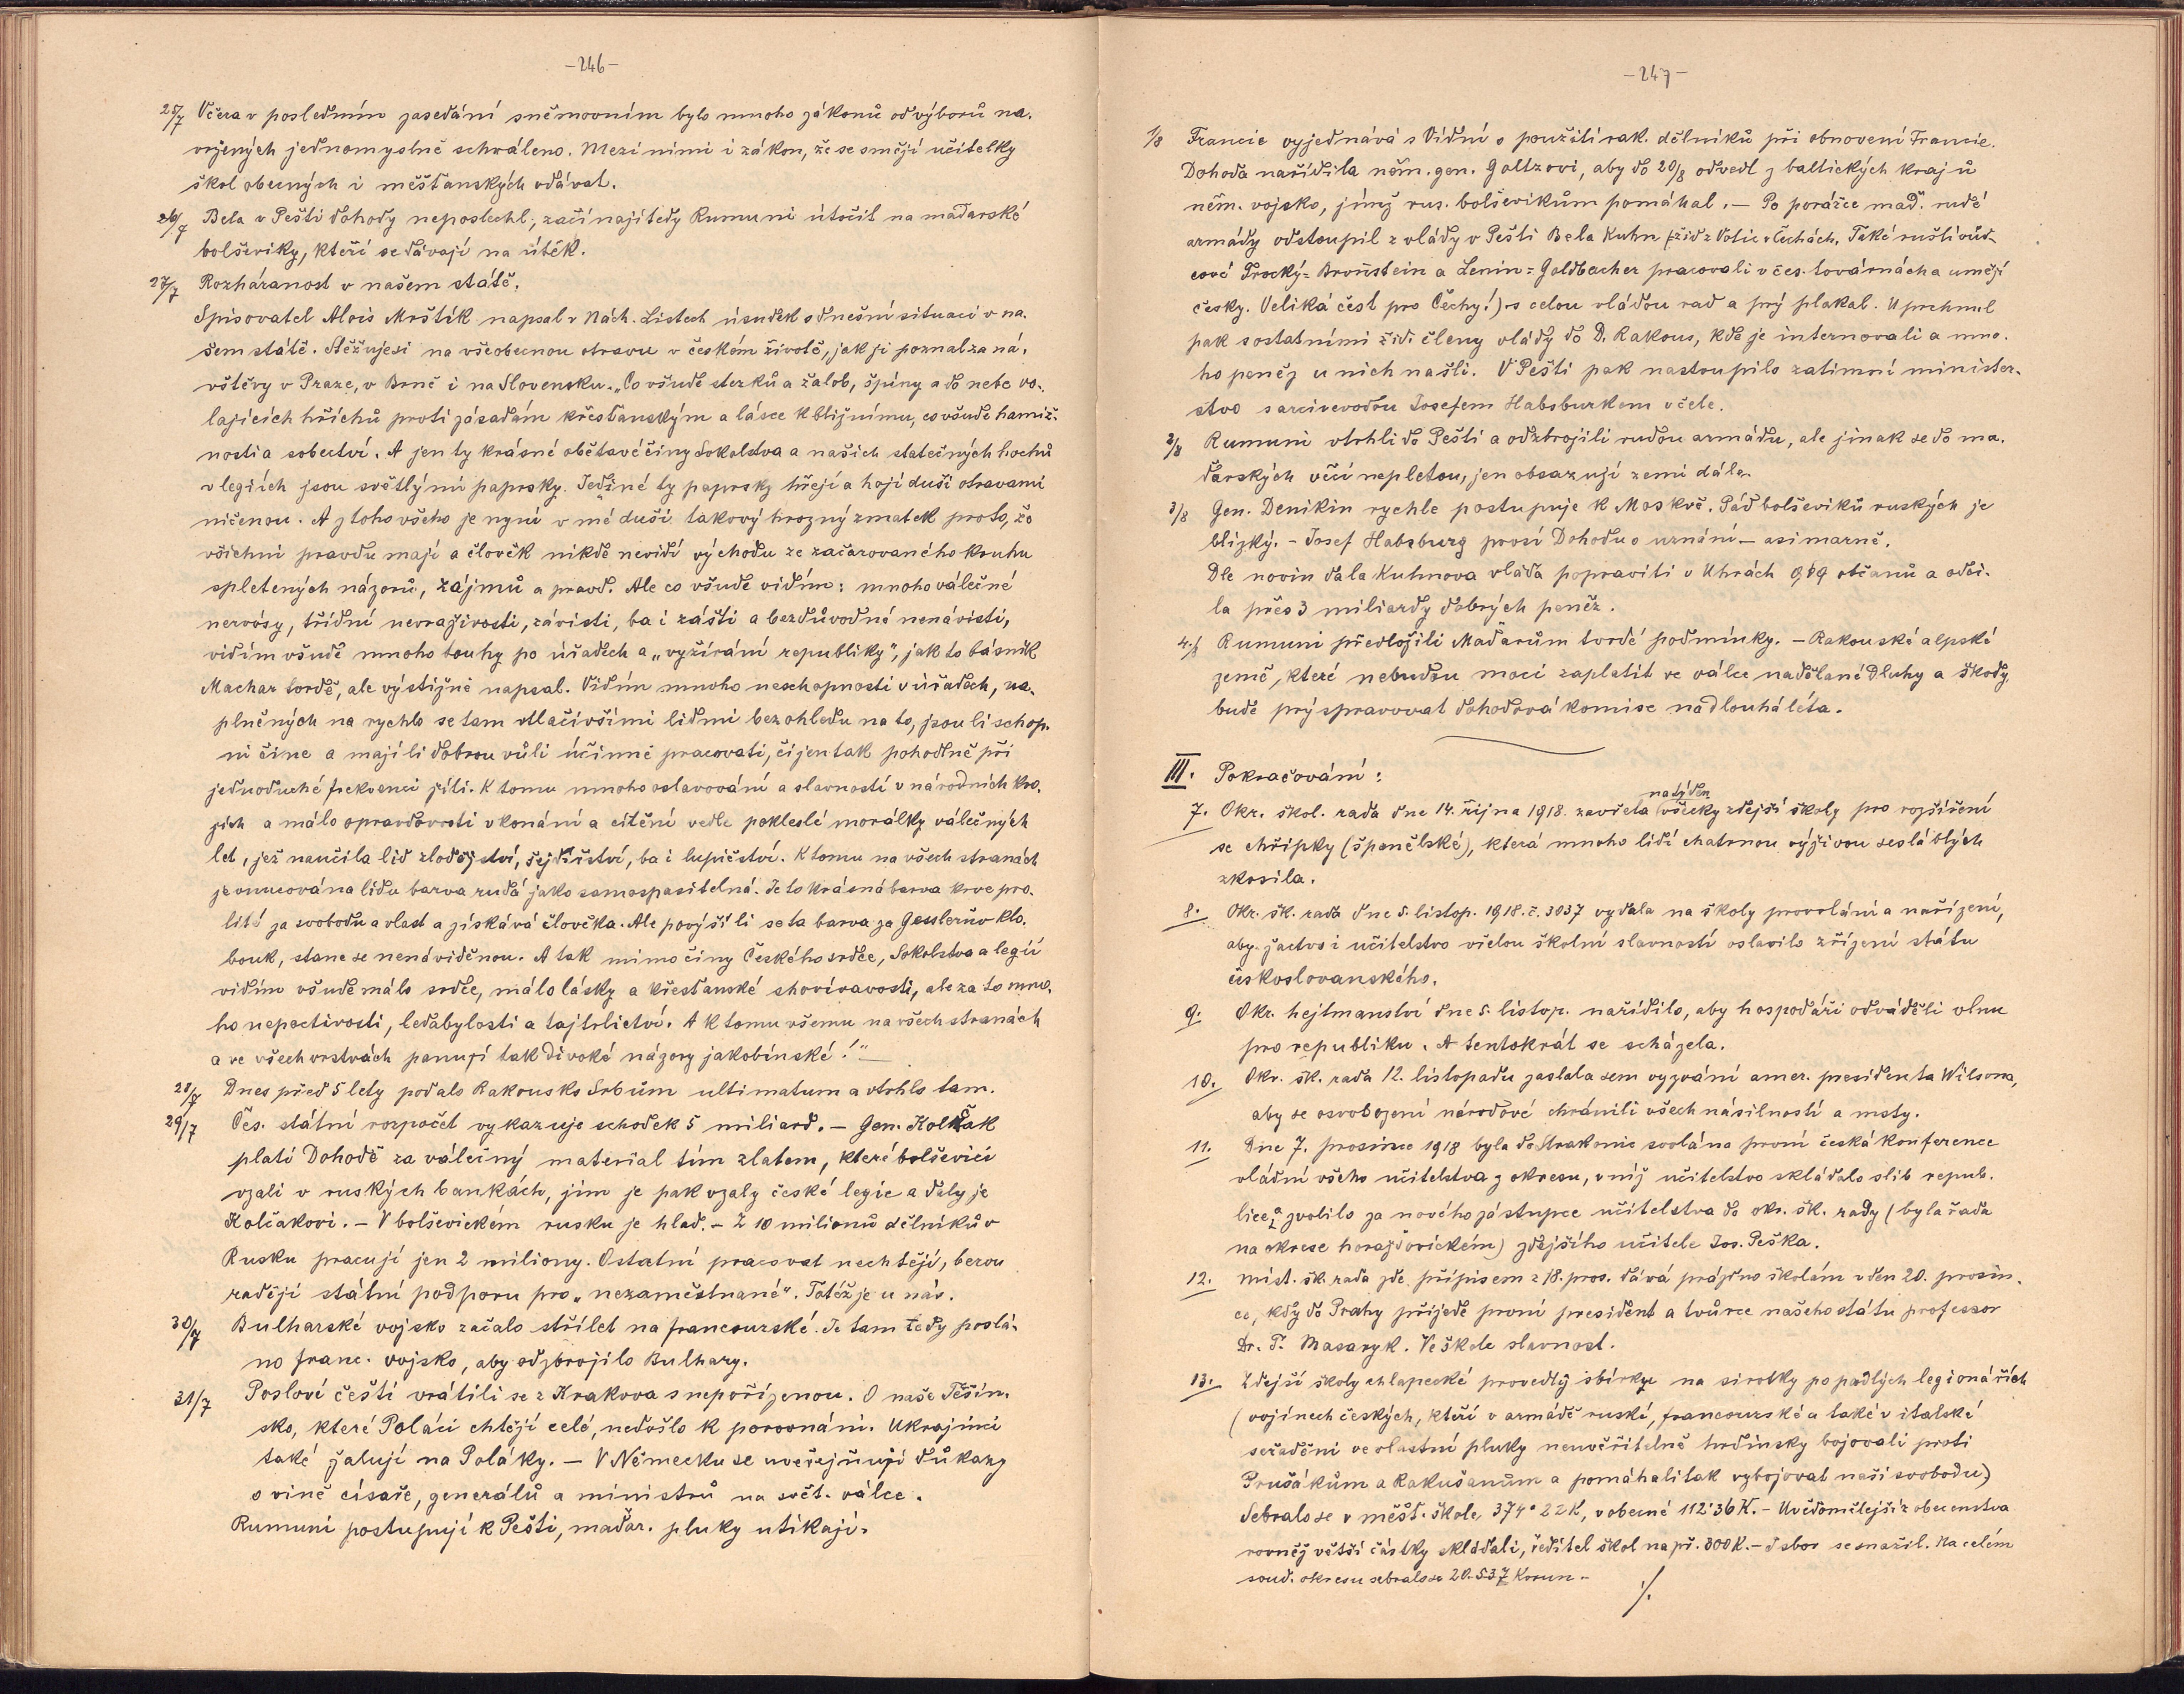 -246-
25/7 Včera v posledním zasedání sněmovním bylo mnoho zákonů od výborů na-
vržených jednomyslně schváleno. Mezi nimi i zákon, že se smějí učitelky
škol obecných i měšťanských vdávat.
26/7 Bela v Pešti dohody neposlechl; začínají tedy Rumuni útočit na maďarské
bolševiky, kteří se dávají na útěk.
27/7 Rozháranost v našem státě.
Spisovatel Alois Mrštík napsal v Nách. Listech úsudek o dnešní situaci v na-
šem státě. Stěžuje si na všeobecnou otravu v českém životě, jak ji poznal za ná-
vštěvy v Praze, v Brně i na Slovensku. „Co všude stezků a žalob, špíny a do nebe vo-
lajících hříchů proti zásadám křesťanským a lásce k bližnímu, co všude hamiž-
nosti a sobectví. A jen ty krásné obětavé činy Sokolstva a našich statečných hochů
v legiích jsou světlými paprsky. Jediné ty paprsky hřejí a hojí duši otravami
ničenou. A z toho všeho je nyní v mé duši takový hrozný zmatek proto, že
všichni pravdu mají a člověk nikde nevidí východu ze začarovaného kruhu
spletených názorů, zájmů a pravd. Ale co všude vidím: mnoho válečné
nervósy, třídní nevraživosti, závisti, ba i zášti a bezdůvodné nenávisti,
vidím všude mnoho touhy po úřadech a „vyžírání republiky", jak to básník
Machar tvrdě, ale výstižně napsal. Vidím mnoho neschopnosti v úřadech, na-
plněných na rychlo se tam vtlačivšími lidmi bez ohledu na to, jsou li schop-
ni čine a mají li dobrou vůli účinně pracovati, či jen tak pohodlně při
jednoduché frekvenci žíti. K tomu mnoho oslavování a slavností v národních kro-
jích a málo opravdovosti v konání a cítění vedle pokleslé morálky válečných
let, jež naučila lid zlodějství, šejdířství, ba i lupičství. K tomu na všech stranách
je vnucována lidu barva rudá jako samospasitelná. Je to krásná barva krve pro-
lité za svobodu a vlast a získává člověka. Ale povýší li se ta barva za Gesslerův klo-
bouk, stane se nenáviděnou. A tak mimo činy Českého srdce, Sokolstva a legií
vidím všude málo srdce, málo lásky a křesťanské shovívavosti, ale za to mno-
ho nepoctivosti, ledabylosti a tajtrlictví. A k tomu všemu na všech stranách
a ve všech vrstvách panují tak divoké názory jakobínské!"
28/7 Dnes před 5 lety podalo Rakousko Srbům ultimatum a vtrhlo tam.
29/7 Čes. státní rozpočet vykazuje schodek 5 miliard. - Gen. Kolčak
platí Dohodě za válečný materiál tím zlatem, které bolševici
vzali v ruských bankách, jim je pak vzaly české legie a daly je
Kolčakovi. - V bolševickém rusku je hlad. - Z 10 milionů dělníků v
Rusku pracují jen 2 miliony. Ostatní pracovat nechtějí, berou
raději státní podporu pro „nezaměstnané". Totéž je u nás.
30/7 Bulharské vojsko začalo střílet na francouzské. Je tam tedy poslá-
no franc. vojsko, aby odzbrojilo Bulhary.
31/7 Poslové čeští vrátili se z Krakova s nepořízenou. O naše Těšín-
sko, které Poláci chtějí celé, nedošlo k porovnání. Ukrajinci
také žalují na Poláky. - V Německu se uveřejňují důkazy
o vině císaře, generálů a ministrů na svět. válce.
Rumuni postupují k Pešti, maďar. pluky utíkají.
-247-
1/8 Francie vyjednává s Vídní o použití rak. dělníků při obnovení Francie.
Dohoda nařídila něm. gen. Goltzovi, aby do 20/8 odvedl z baltických krajů
něm. vojsko, jímž rus. bolševikům pomáhal. - Po porážce maď. rudé
armády odstoupil z vlády v Pešti Bela Kuhn (žid z Votic v Čechách. Také ruští vůd-
cové Trocký=Bronštein a Lenin=Goldbacher pracovali v čes. továrnách a umějí
česky. Veliká čest pro Čechy!) s celou vládou rad a prý plakal. Uprchnul
pak s ostatními žid. členy vlády do D. Rakous, kde je internovali a mno-
ho peněz u nich našli. V Pešti pak nastoupilo zatimní minister-
stvo s arcivevodou Josefem Habsburkem v čele.
2/8 Rumuni vtrhli do Pešti a odzbrojili rudou armádu, ale jinak se do ma-
ďarských věcí nepletou, jen obsazují zemi dále.
3/8 Gen. Denikin rychle postupuje k Moskvě. Pád bolševiků ruských je
blízký. - Josef Habsburg prosí Dohodu o uznání - asi marně.
Dle novin dala Kuhnova vláda popraviti v Uhrách 989 občanů a odci-
la přes 3 miliardy dobrých peněz.
4./8 Rumuni předložili Maďarům tvrdé podmínky. - Rakouské alpské
země, které nebudou moci zaplatit ve válce nadělané Dluhy a škody,
bude prý spravovat dohodová komise na dlouhá léta.
III. Pokračování:
7. Okr. škol. rada dne 14. října 1918. zavřela na týden všecky zdejší školy pro rozšíření
se chřipky (španělské), která mnoho lidí chatrnou výživou sesláblých
zkosila.
8. Okr. šk. rada dne 5. listop. 1918. č. 3037 vydala na školy provolání a nařízení,
aby žactvo i učitelstvo vřelou školní slavností oslavilo zřízení státu
českoslovanského.
9. Okr. hejtmanství dne 5. listop. nařídilo, aby hospodáři odváděli vlnu
pro republiku. A tentokrát se scházela.
10. Okr. šk. rada 12. listopadu zaslala sem vyzvání amer. presidenta Wilsona,
aby se osvobození národové chránili všech násilností a msty.
11. Dne 7. prosince 1918 byla do Strakonic svolána první česká konference
vládní všeho učitelstva z okresu, v níž učitelstvo skládalo slib repub-
lice a zvolilo za nového zástupce učitelstva do okr. šk. rady (byla řada
na okrese horažďovickém) zdejšího učitele Jos. Peška.
12. Míst. šk. rada zde přípisem z 18. pros. dává prázdno školám v den 20. prosin-
ce, kdy do Prahy přijede první president a tvůrce našeho státu professor
Dr. T. Masaryk. Ve škole slavnost.
13. Zdejší školy chlapecké provedly sbírky na sirotky po padlých legionářích
(vojínech českých, kteří v armádě ruské, francouzské a také v italské
seřaděni ve vlastní pluky neuvěřitelně hrdinsky bojovali proti
Prušákům a Rakušanům a pomáhali tak vybojovat naši svobodu)
Sebralo se v měšť. škole 374·22 K, v obecné 112·36 K. - Uvědomělejší z obecenstva
rovněž větší částky skládali, ředitel škol např. 300 K. - Sbor se snažil. Na celém
soud. okresu sebralo se 20.537 Korun. -
./.